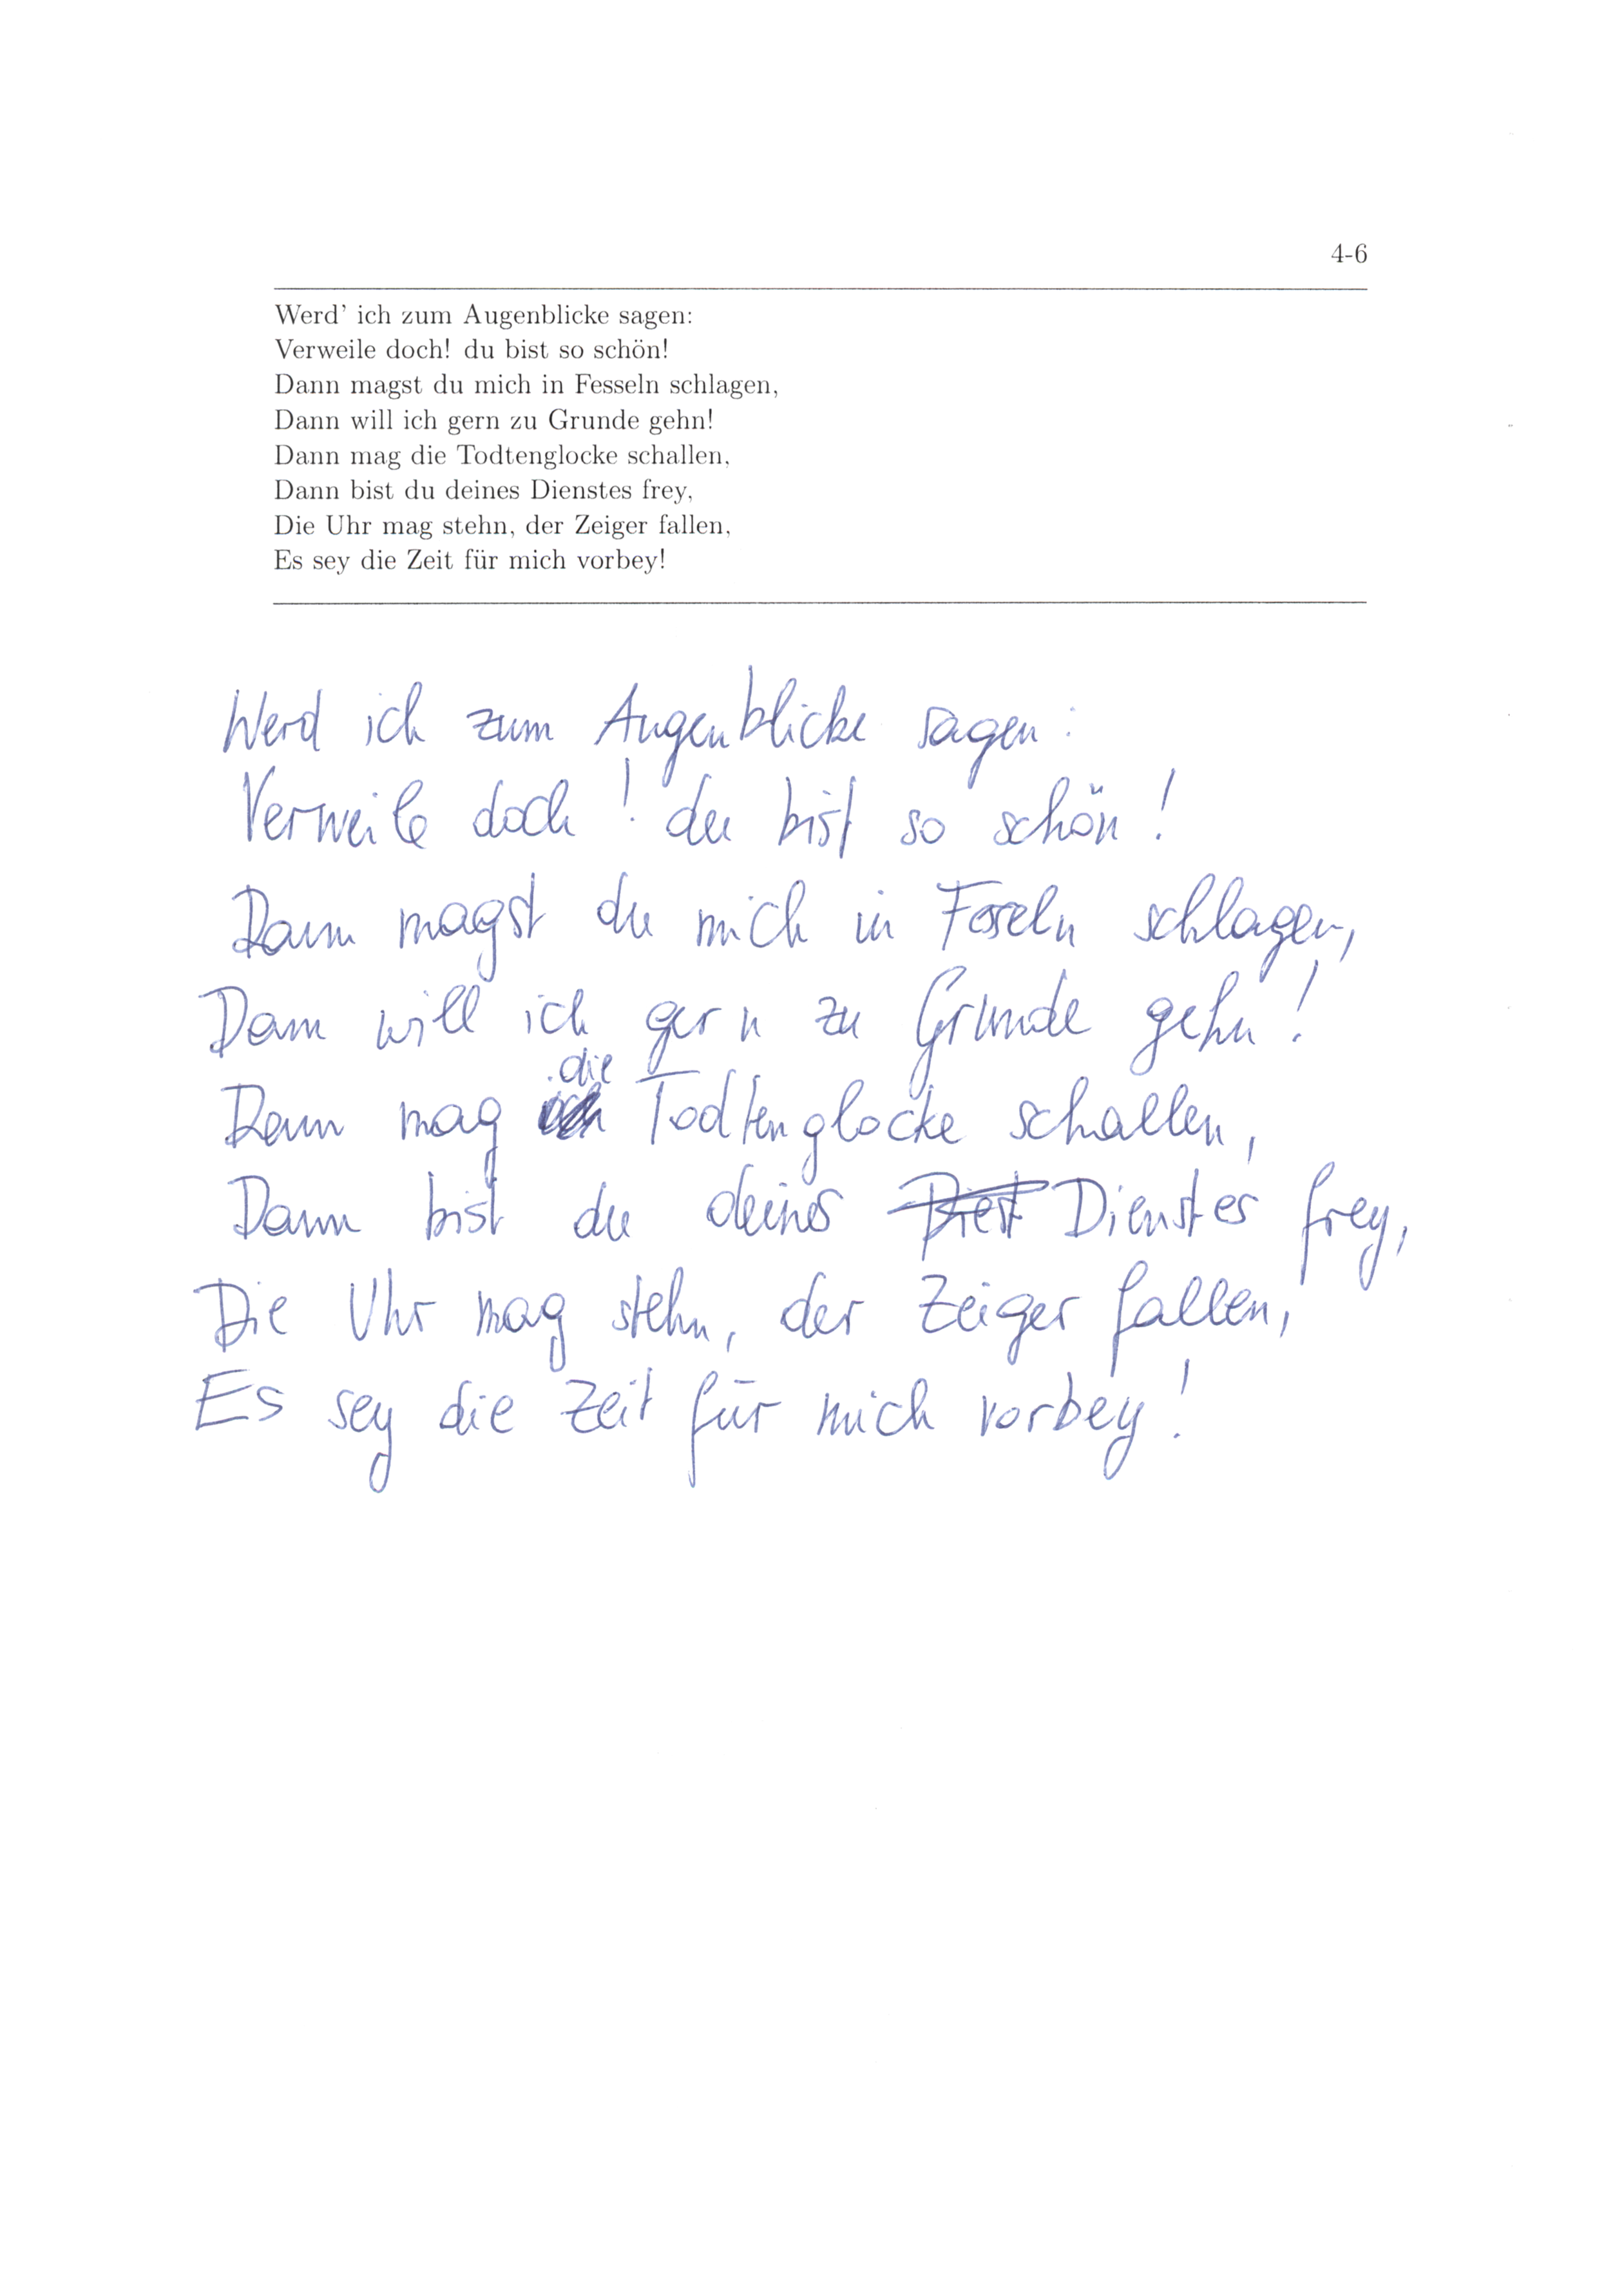 4-6
Werd' ich zum Augenblicke sagen:
Verweile doch! du bist so schön!
Dann magst du mich in Fesseln schlagen,
Dann will ich gern zu Grunde gehn!
Dann mag die Todtenglocke schallen,
Dann bist du deines Dienstes frey,
Die Uhr mag stehn, der Zeiger fallen,
Es sey die Zeit für mich vorbey!
Werd ich zum Augenblicke sagen:
Verweile doch! du bist so schön!
Dann magst du mich in Fesseln schlagen,
Dann will ich gern zu Grunde gehn!
Dann mag die Todtenglocke schallen,
Dann bist du deines Dienstes frey,
Die Uhr mag stehn, der Zeiger fallen,
Es sey die Zeit für mich vorbey!